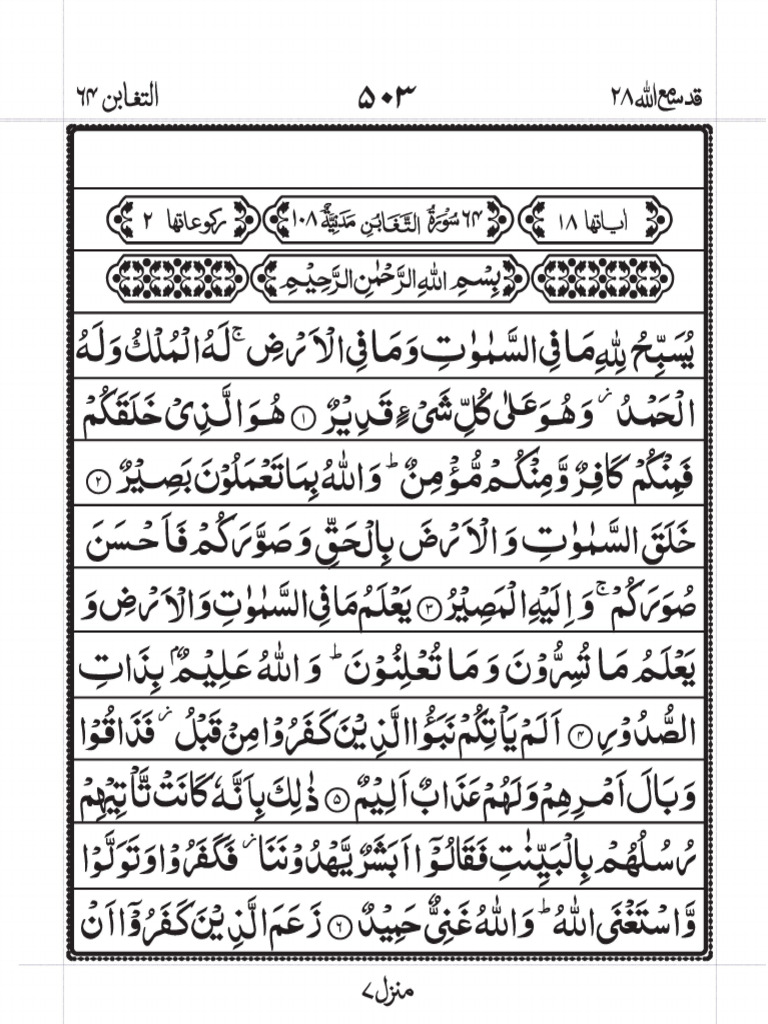 قد سمع الله ۲۸ ۵۰۳ التغابن ۶۴
اٰیاتها ۱۸ ۶۴ سُوْرَةُ التَّغَابُنِ مَدَنِیَّةٌ ۱۰۸ رکوعاتها ۲
بِسْمِ اللهِ الرَّحْمٰنِ الرَّحِیْمِ
یُسَبِّحُ لِلّٰهِ مَا فِی السَّمٰوٰتِ وَ مَا فِی الْاَرْضِ ۚ لَهُ الْمُلْكُ وَ لَهُ
الْحَمْدُ ؗ وَ هُوَ عَلٰی كُلِّ شَیْءٍ قَدِیْرٌ ۝۱ هُوَ الَّذِیْ خَلَقَكُمْ
فَمِنْكُمْ كَافِرٌ وَّ مِنْكُمْ مُّؤْمِنٌ ؕ وَ اللهُ بِمَا تَعْمَلُوْنَ بَصِیْرٌ ۝۲
خَلَقَ السَّمٰوٰتِ وَ الْاَرْضَ بِالْحَقِّ وَ صَوَّرَكُمْ فَاَحْسَنَ
صُوَرَكُمْ ۚ وَ اِلَیْهِ الْمَصِیْرُ ۝۳ یَعْلَمُ مَا فِی السَّمٰوٰتِ وَ الْاَرْضِ وَ
یَعْلَمُ مَا تُسِرُّوْنَ وَ مَا تُعْلِنُوْنَ ؕ وَ اللهُ عَلِیْمٌۢ بِذَاتِ
الصُّدُوْرِ ۝۴ اَلَمْ یَاْتِكُمْ نَبَؤُا الَّذِیْنَ كَفَرُوْا مِنْ قَبْلُ ؗ فَذَاقُوْا
وَبَالَ اَمْرِهِمْ وَ لَهُمْ عَذَابٌ اَلِیْمٌ ۝۵ ذٰلِكَ بِاَنَّهٗ كَانَتْ تَّاْتِیْهِمْ
رُسُلُهُمْ بِالْبَیِّنٰتِ فَقَالُوْۤا اَبَشَرٌ یَّهْدُوْنَنَا ؗ فَكَفَرُوْا وَ تَوَلَّوْا
وَّ اسْتَغْنَی اللهُ ؕ وَ اللهُ غَنِیٌّ حَمِیْدٌ ۝۶ زَعَمَ الَّذِیْنَ كَفَرُوْۤا اَنْ
منزل ۷